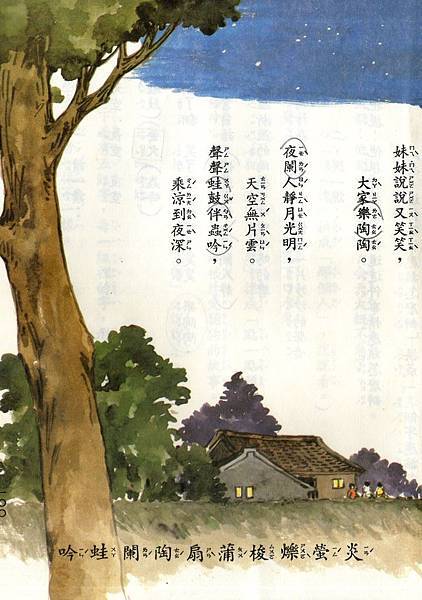 妹妹說說又笑笑，
大家樂陶陶。
夜闌人靜月光明，
天空無片雲。
聲聲蛙鼓伴蟲吟，
乘涼到夜深。
炎螢爍梭蒲扇陶闌蛙吟